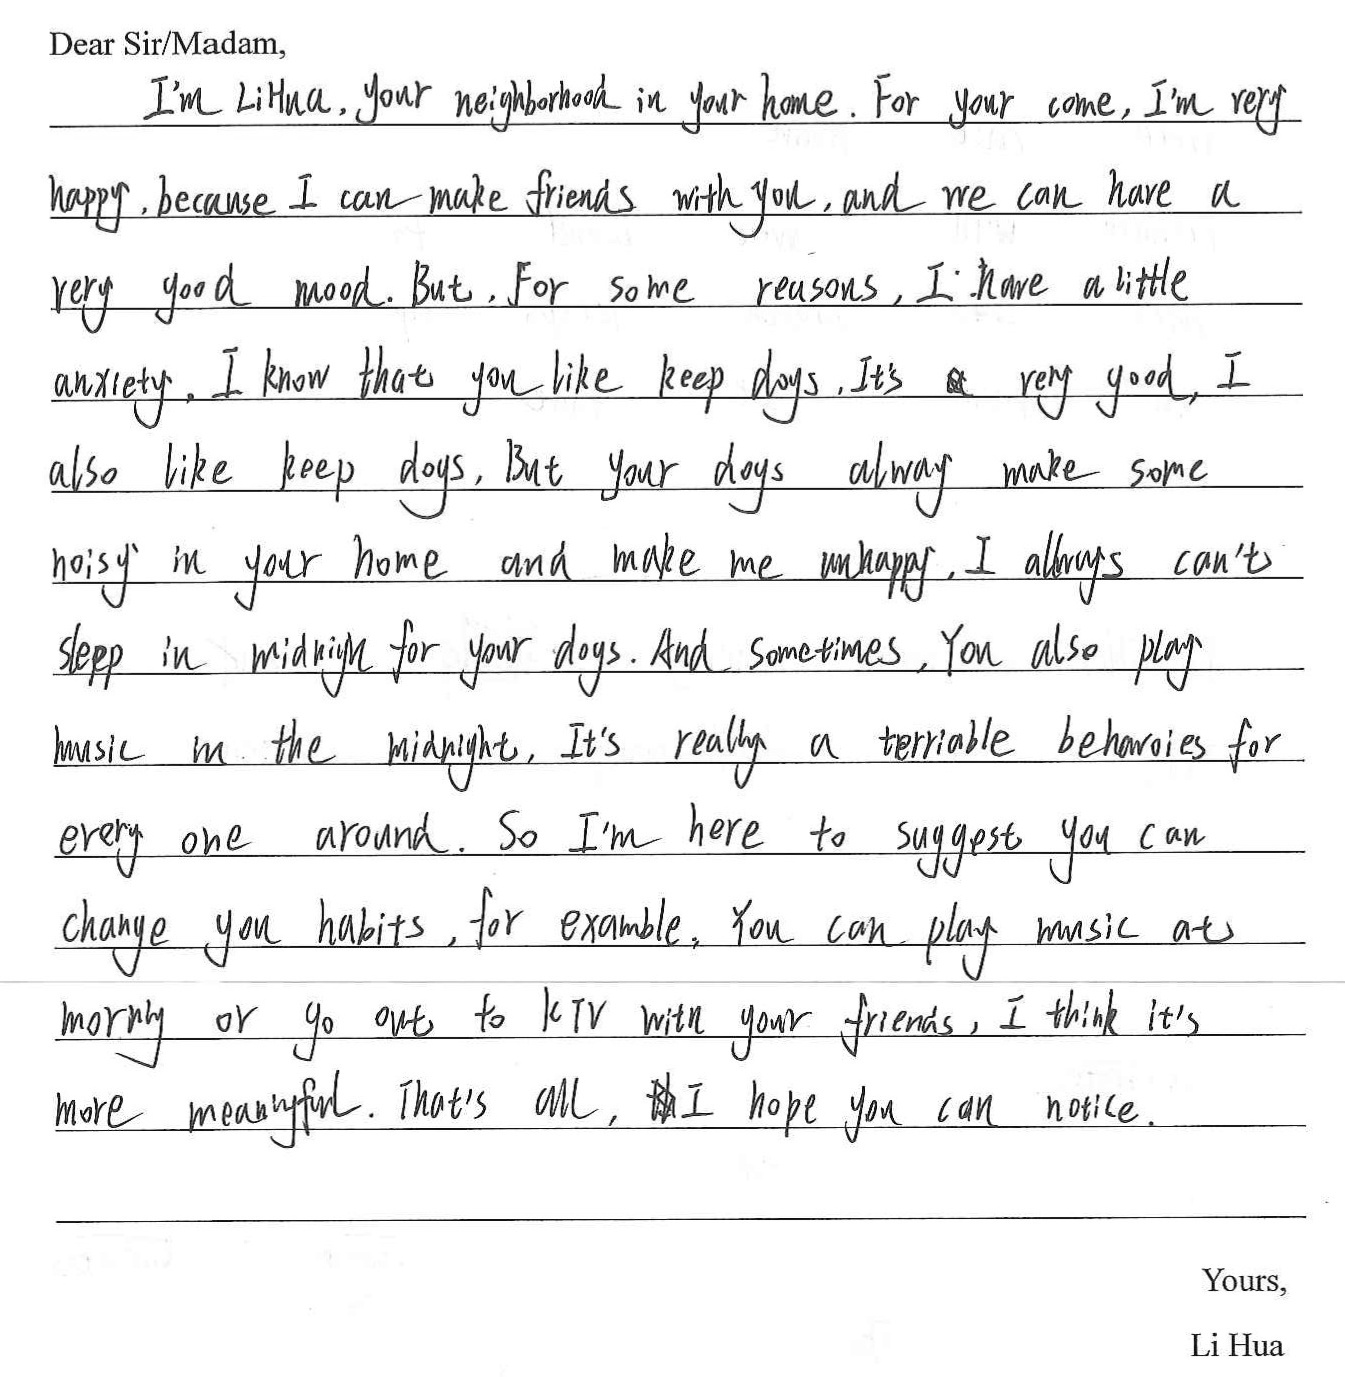 Dear Sir/Madam,
I'm LiHua, your neighborhood in your home. For your come, I'm very
happy, because I can make friends with you, and we can have a
very good mood. But, For some reasons, I have a little
anxiety, I know that you like keep dogs, It's very good, I
also like keep dogs, But your dogs alway make some
noisy in your home and make me unhappy, I allways can't
sleep in midnigh for your dogs. And sometimes, You also play
music in the midnight, It's really a terriable behavoies for
every one around. So I'm here to suggest you can
change you habits, for examble, You can play music at
mornig or go out to KTV with your friends, I think it's
more meanyful. That's all, I hope you can notice.
Yours,
Li Hua